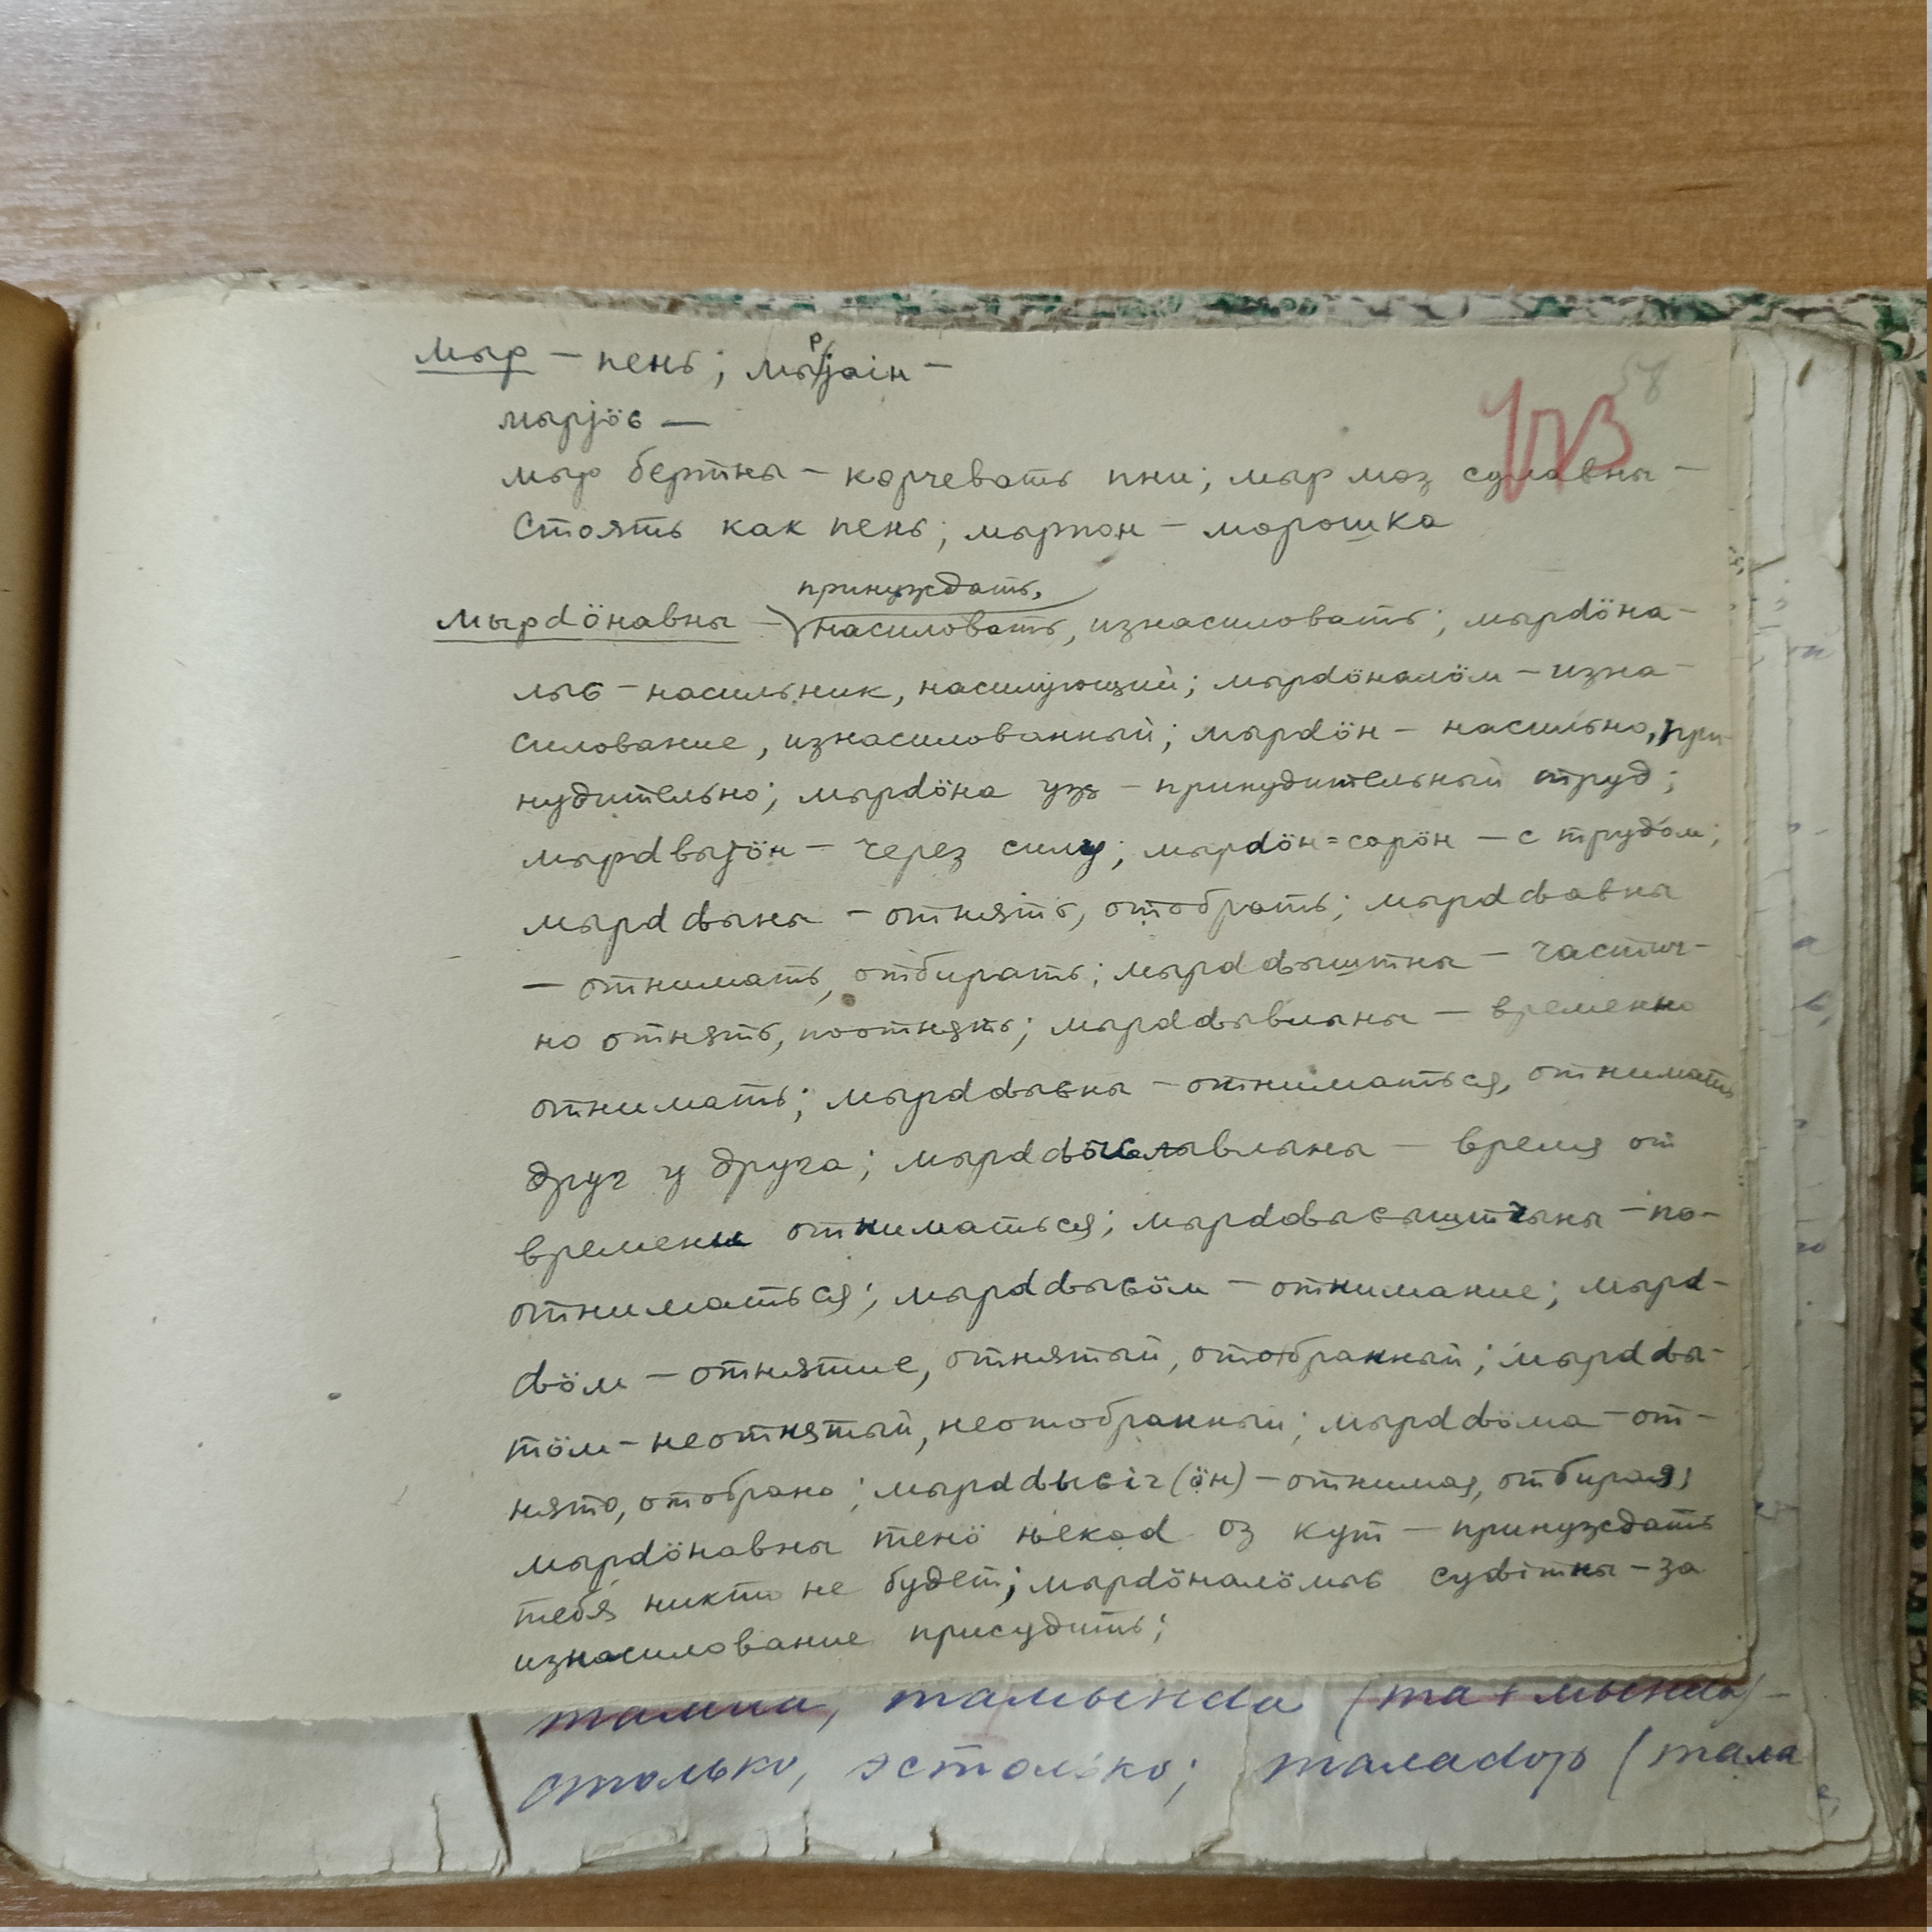 58
173
мыр – пень; мырјаін –
мырјӧԍ —
мыр бертны – корчевать пни; мыр моз сулавны –
стоять как пень; мырпон – морошка
принуждать,
мырdӧнавны – насиловать, изнасиловать; мырdӧна-
лыԍ – насильник, насилующий; мырdӧналӧм – изна-
силование, изнасилованный; мырdӧн – насильно, при-
нудительно; мырdӧна уҗ – принудительный труд;
мырdвыјӧн – через силу; мырdӧн=сорӧн – с трудом;
мырdԁыны – отнять, отобрать; мырdԁавны
– отнимать, отбирать; мырdԁыштны – частич-
но отнять, поотнять; мырdԁывлыны – временно
отнимать; мырdԁыԍны – отниматься, отнимать
друг у друга; мырdԁыԍлывлыны – время от
времени отниматься; мырdԁыԍыштлыны – по-
отниматься; мырdԁыԍӧм – отнимание; мырd-
ԁӧм – отнятие, отнятый, отобранный; мырdԁы-
тӧм – неотнятый, неотобранный; мырdԁӧма – от-
нято, отобрано; мырdԁыԍіг (ӧн) – отнимая, отбирая;
мырdӧнавны тенӧ њекоd оз кут – принуждать
тебя никто не будет; мырdӧналӧмыԍ суԁітны – за
изнасилование присудить;
тамында (та + мында) –
столько, эстолько; талаdор (тала